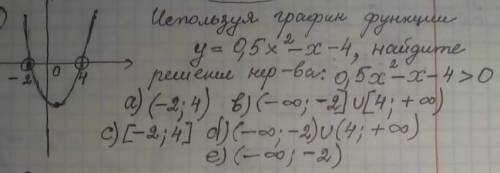 Используя график функции
y = 0,5x² - x - 4, найдите
решение нер-ва: 0,5x² - x - 4 > 0
a) (-2; 4) b) (-∞; -2] ∪ [4; +∞)
c) [-2; 4] d) (-∞; -2) ∪ (4; +∞)
e) (-∞; -2)
-2 0 4